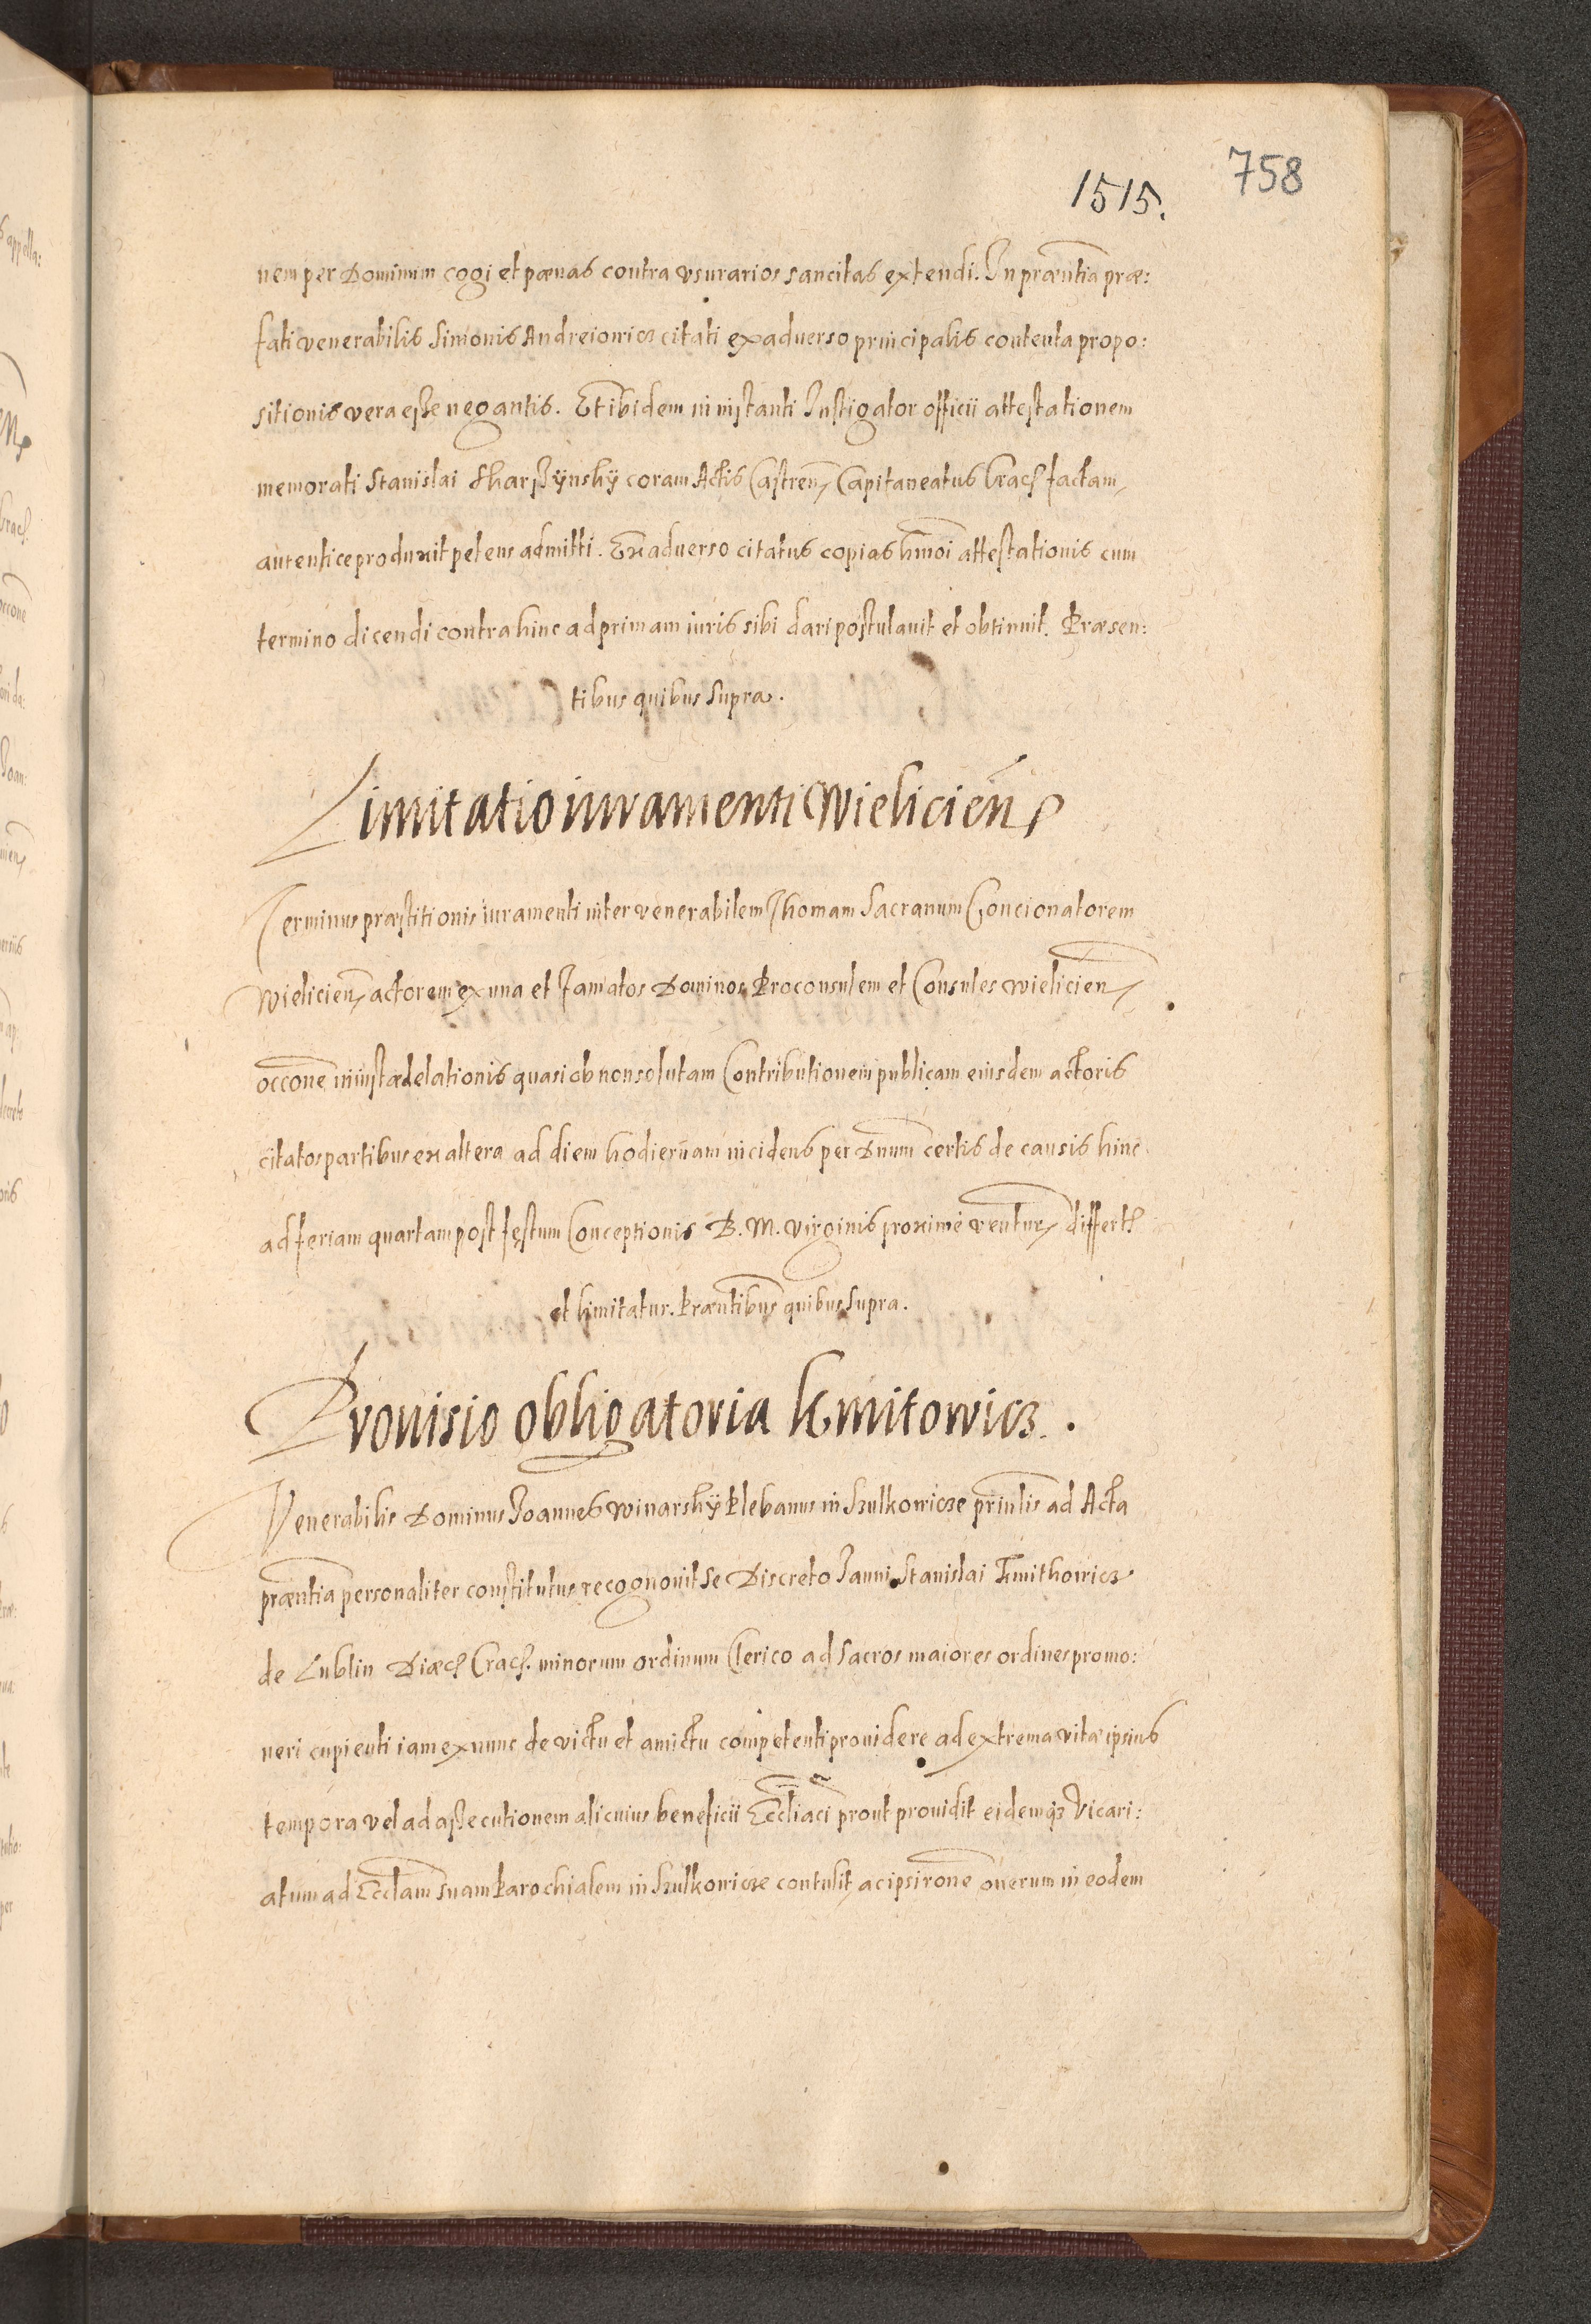 758
1515.
nem per Dominum cogi et pœnas contra vsurarios sancitas extendi. In præntia præ:
fati venerabilis Simonis Andreiowicz citati ex aduerso principalis contenta propo:
sitionis vera eße negantis. Et ibidem in instanti Instigator officii attestationem
memorati Stanislai Skarßÿnskÿ coram Actis Castren Capitaneatus Crac factam
autentice produxit petens admitti. Ex aduerso citatus copias hmoi attestationis cum
termino dicendi contra hinc ad primam iuris sibi dari postulauit et obtinuit. Præsen:
tibus quibus supra.
Limitatio iuramenti Wielicien
Terminus præstitionis iuramenti inter venerabilem Thomam Sacranum Concionatorem
Wielicien actorem ex vna et famatos Dominos Proconsulem et Consules Wielicien
occone iniustæ delationis quasi ob non solutam Contributionem publicam eiusdem actoris
citatos partibus ex altera ad diem hodiernam incidens per Dnum certis de causis hinc
ad feriam quartam post festum Conceptionis B. M. Virginis proxime ventur differt
et limitatur. Præntibus quibus supra.
Prouisio obligatoria Kmitowicz.
Venerabilis Dominus Joannes Winarskÿ Plebanus in Szulkowicze prinlis ad Acta
præntia personaliter constitutus recognouit se Discreto Janni Stanislai Kmithowicz
de Lublin Diæc Crac. minorum ordinum Clerico ad sacros maiores ordines promo:
ueri cupienti iam ex nunc de victu et amictu competenti prouidere ad extrema vitæ ipsius
tempora vel ad aßecutionem alicuius beneficii Eccliaci prout prouidit eidemqz Vicari:
atum ad Ecclam suam Parochialem in Szulkowicze contulit, ac ipsi rone onerum in eodem